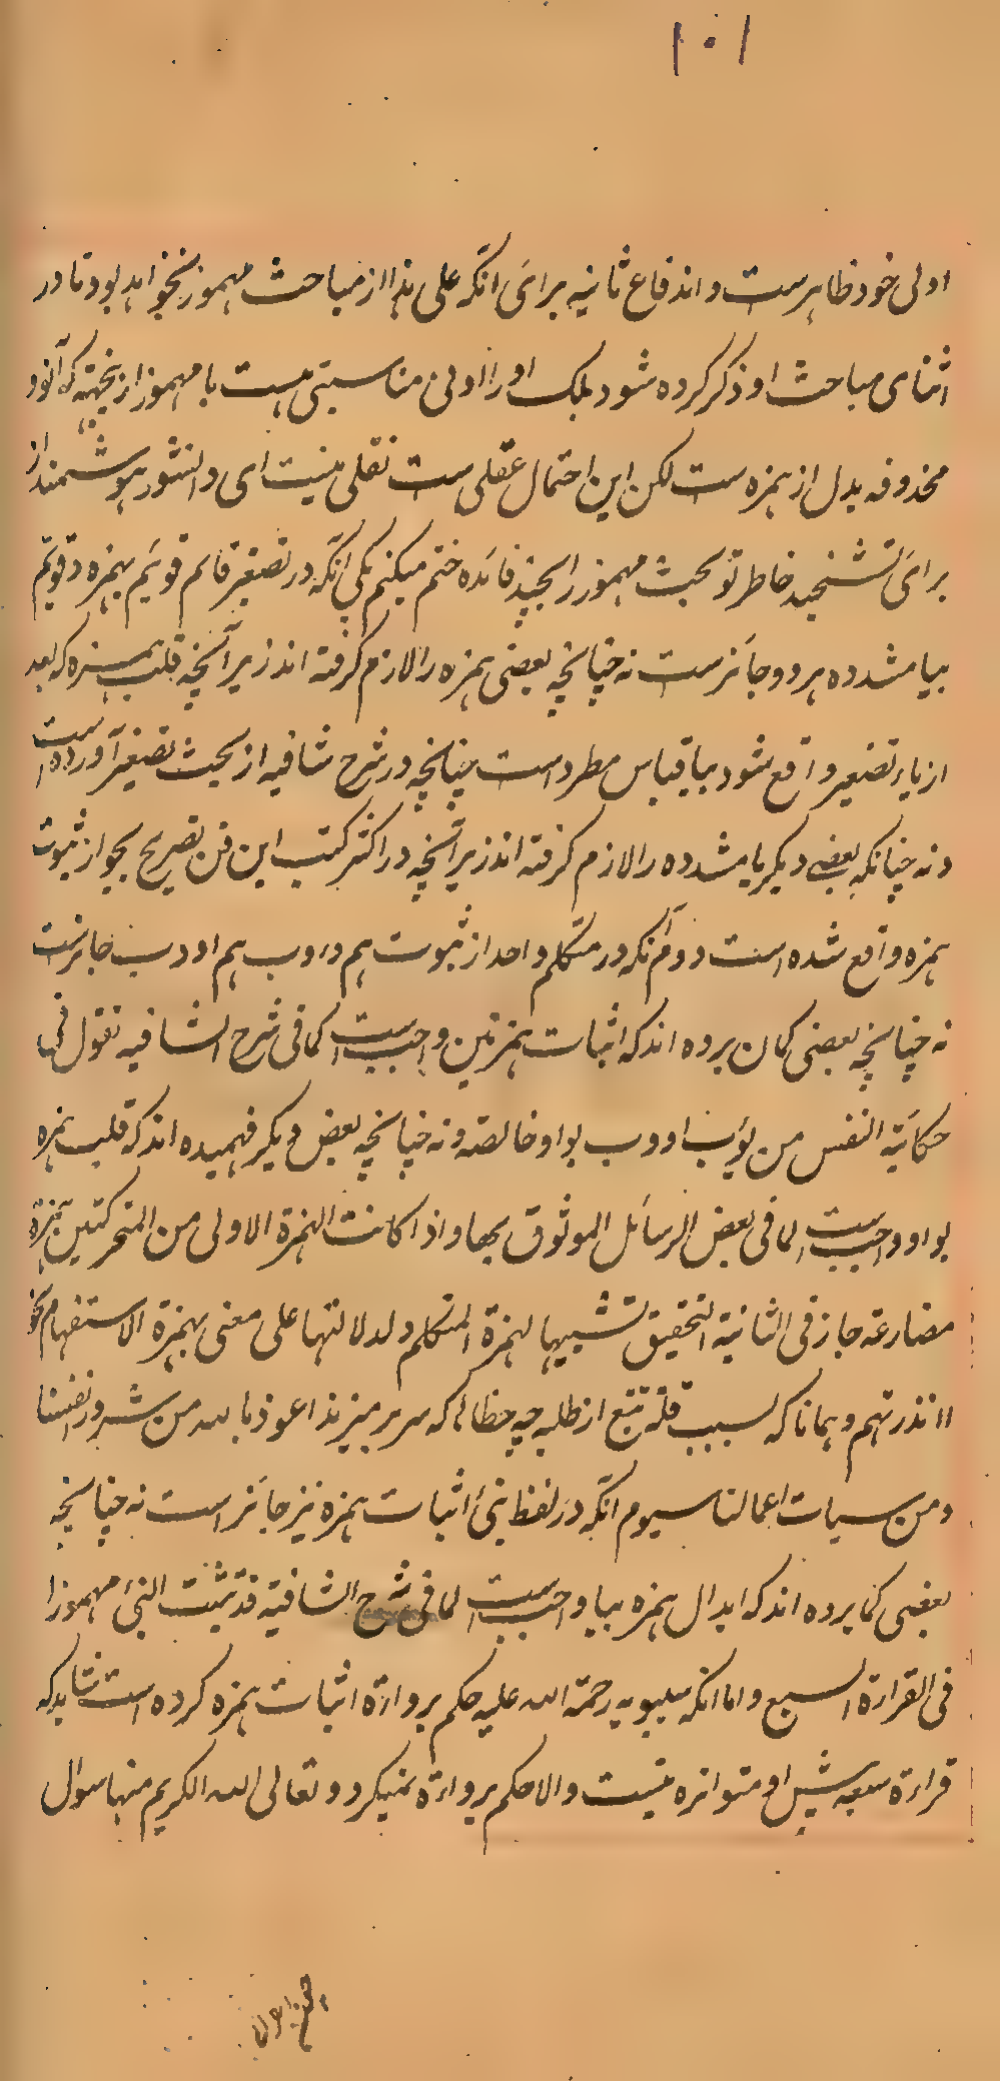 ۱۰۱
اولی خود ظاهرست و اندفاع ثانیه برای انکه علی هذا از مباحث مهموز نخواهد بود تا در
اثنای مباحث او ذکر کرده شود بلکه او را ادنی مناسبتی هست با مهموز ازینجهته که آنواو
محذوفه بدل از همزه ست لکن این احتمال عقلی ست نقلی نیست ای دانشور هوشمند از
برای تشحیذ خاطر تو بحث مهموز را بچند فائده ختم میکنم یکی انکه در تصغیر قائم قویئم بهمزه و قویّم
بیا مشدده هر دو جائزست نه چنانچه بعضی همزه را لازم گرفته اند زیرانچه قلب همزه که بعد
از یاء تصغیر واقع شود بیا قیاس مطرد است چنانچه در شرح شافیه از بحث تصغیر آورده است
و نه چنانکه بعضی دیگر یا مشدده را لازم گرفته اند زیرانچه در اکثر کتب این فن تصریح بجواز ثبوت
همزه واقع شده است دوم آنکه در متکلم واحد از ثبوت هم دروب هم اودب جائزست
نه چنانچه بعضی گمان برده اند که اثبات همزتین واجب است کما فی شرح الشافیه نقول فی
حکایة النفس من یؤب اووب بواو خالصه و نه چنانچه بعض دیگر فهمیده اند که قلب همزه
بواو واجب است لما فی بعض الرسائل الموثوق بها و اذا کانت الهمزة الاولی من المتحرکتین همزة
مضارعة جاز فی الثانیة التحقیق تشبیها لهمزة المتکلم لدلالتها علی معنی بهمزة الاستفهام نحو
اانذرتهم و همانا که بسبب قلة تتبع از طلبه چه خطا که سر بر میزند اعوذ بالله من شرور انفسنا
و من سیات اعمالنا سیوم انکه در لفظ نبی اثبات همزه نیز جائز است نه چنانچه
بعضی گما برده اند که ابدال همزه بیا واجب است لما فی شرح الشافیة قد ثبت النبئ مهموزا
فی القراءة السبع و اما انکه سیبویه رحمة الله علیه حکم برداءة اثبات همزه کرده است شاید که
قراءة سبعه پیش او متواتره نیست والا حکم برداءة نمیکرد و تعالی الله الکریم منها سوال